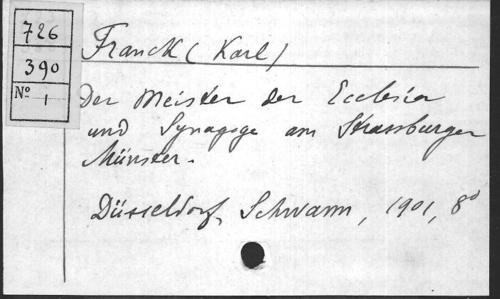 726
390
No 1
Franck (Karl)
Der Meister der Ecclesia
und Synagoge am Strassburger
Münster.
Düsseldorf, Schwann, 1901, 8o